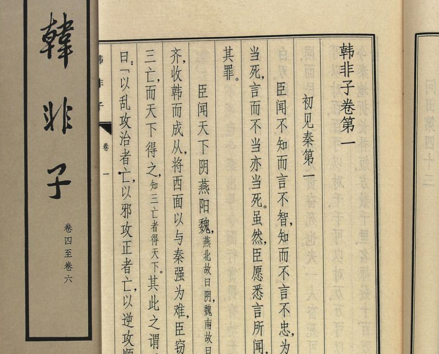 韩非子卷第一
初见秦第一
臣闻不知而言不智，知而不言不忠。为
当死，言而不当亦当死。虽然，臣愿悉言所闻，
其罪。
臣闻天下阴燕阳魏，燕北故曰阴，魏南故曰
齐，收韩而成从，将西面以与秦强为难，臣窃
三亡，而天下得之，知三亡者得天下。其此之谓
曰：「以乱攻治者亡，以邪攻正者亡，以逆攻顺
韩非子
卷一
韓非子
卷四至卷六